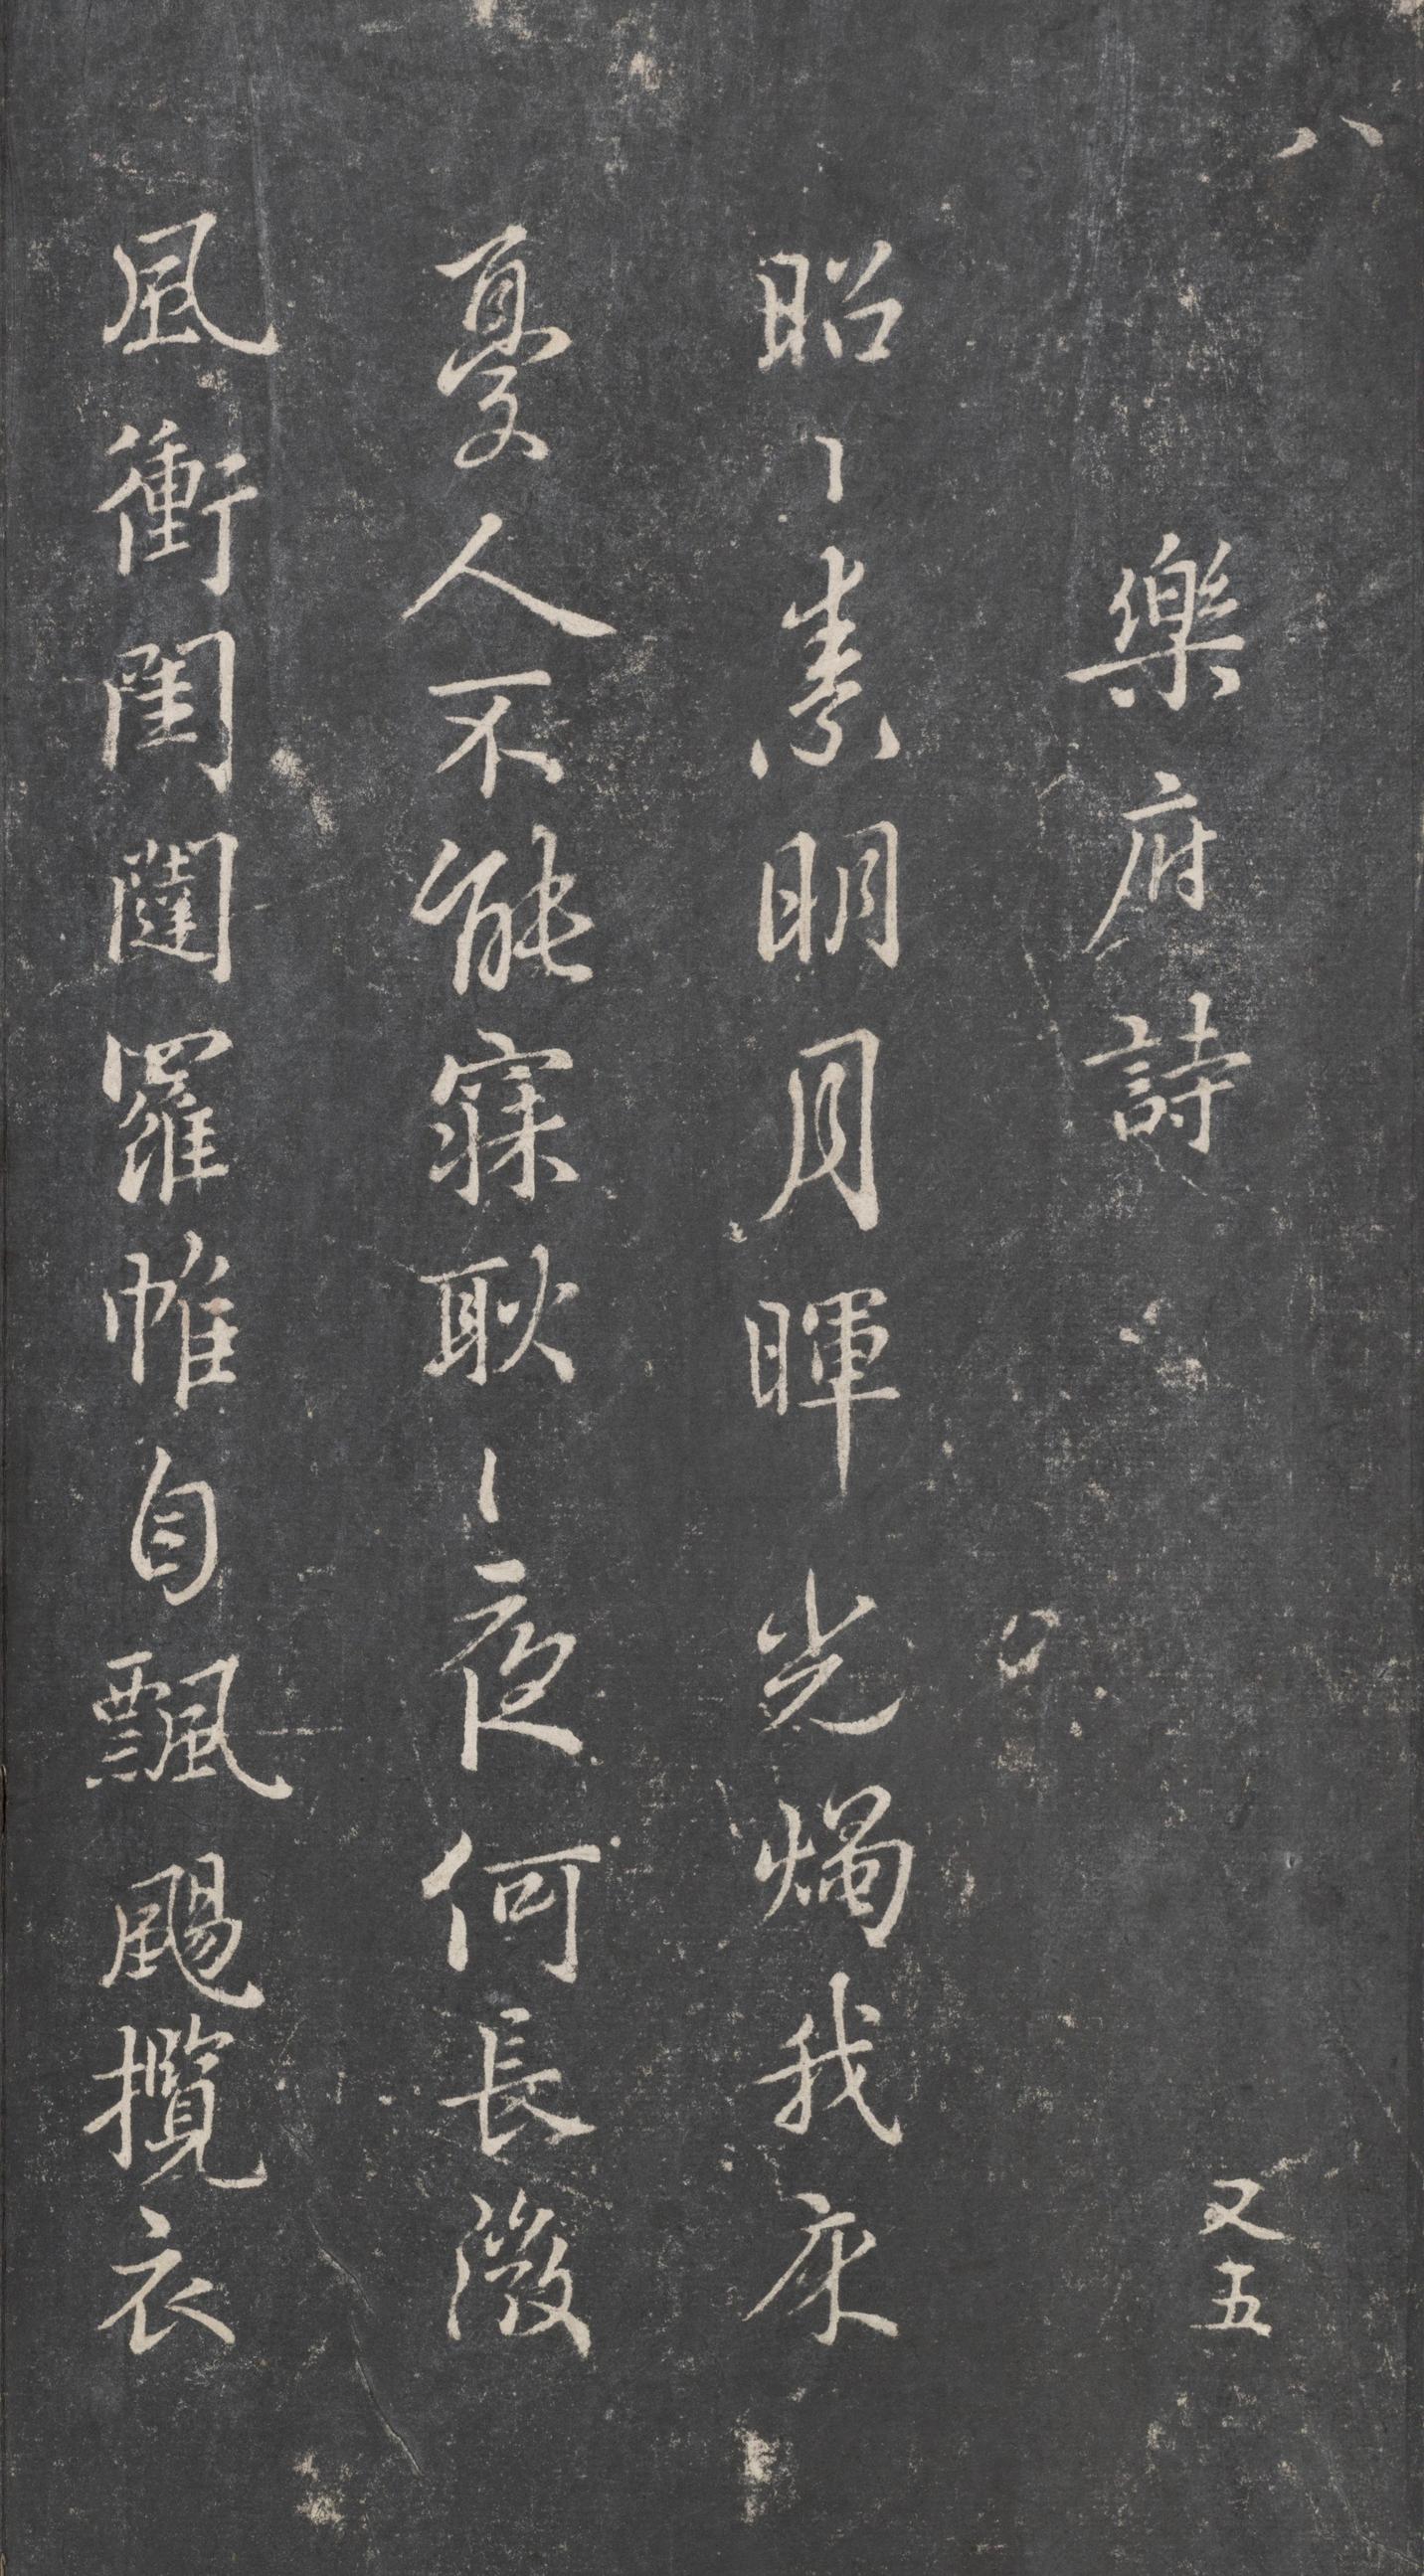 八
樂府詩
又五
昭〻素明月暉光燭我床
憂人不能寐耿〻夜何長微
風衝閨闥羅帷自飄颺攬衣